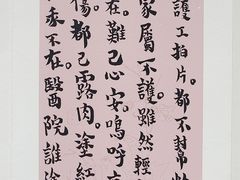 護工拍片。都不幫
家屬不護雖然輕
在。難已心安嗚呼
傷都已露肉塗紅
不在。醫院誰